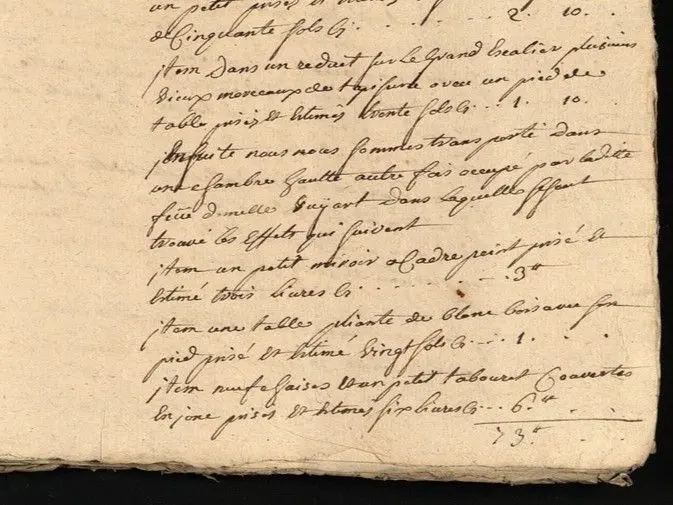 un petit prisés et
de Cinquante sols Cy . . . . . . 2. 10.
jtem Dans un reduit sur le Grand Escalier plusieurs
vieux morceaux de tapisserie avec un pied de
table prisés et Estimés trente sols Cy . . . 1. 10.
Ensuite nous nous sommes transporté dans
une chambre haulte autre fois occupé par ladite
feüe dmelle Vuÿart dans laquelle sesont
trouvé les Effets qui suivent
jtem un petit miroir a Cadre peint prisé et
Estimé trois livres Cy . . . . . . . 3tt
jtem une table pliante de blanc bois avec son
pied prisé et Estimé vingt sols Cy . . . 1. . .
jtem neuf chaises et un petit tabouret Couvertes
En jonc prisés et Estimés six livres Cy . . . 6.tt . .
73.tt . .